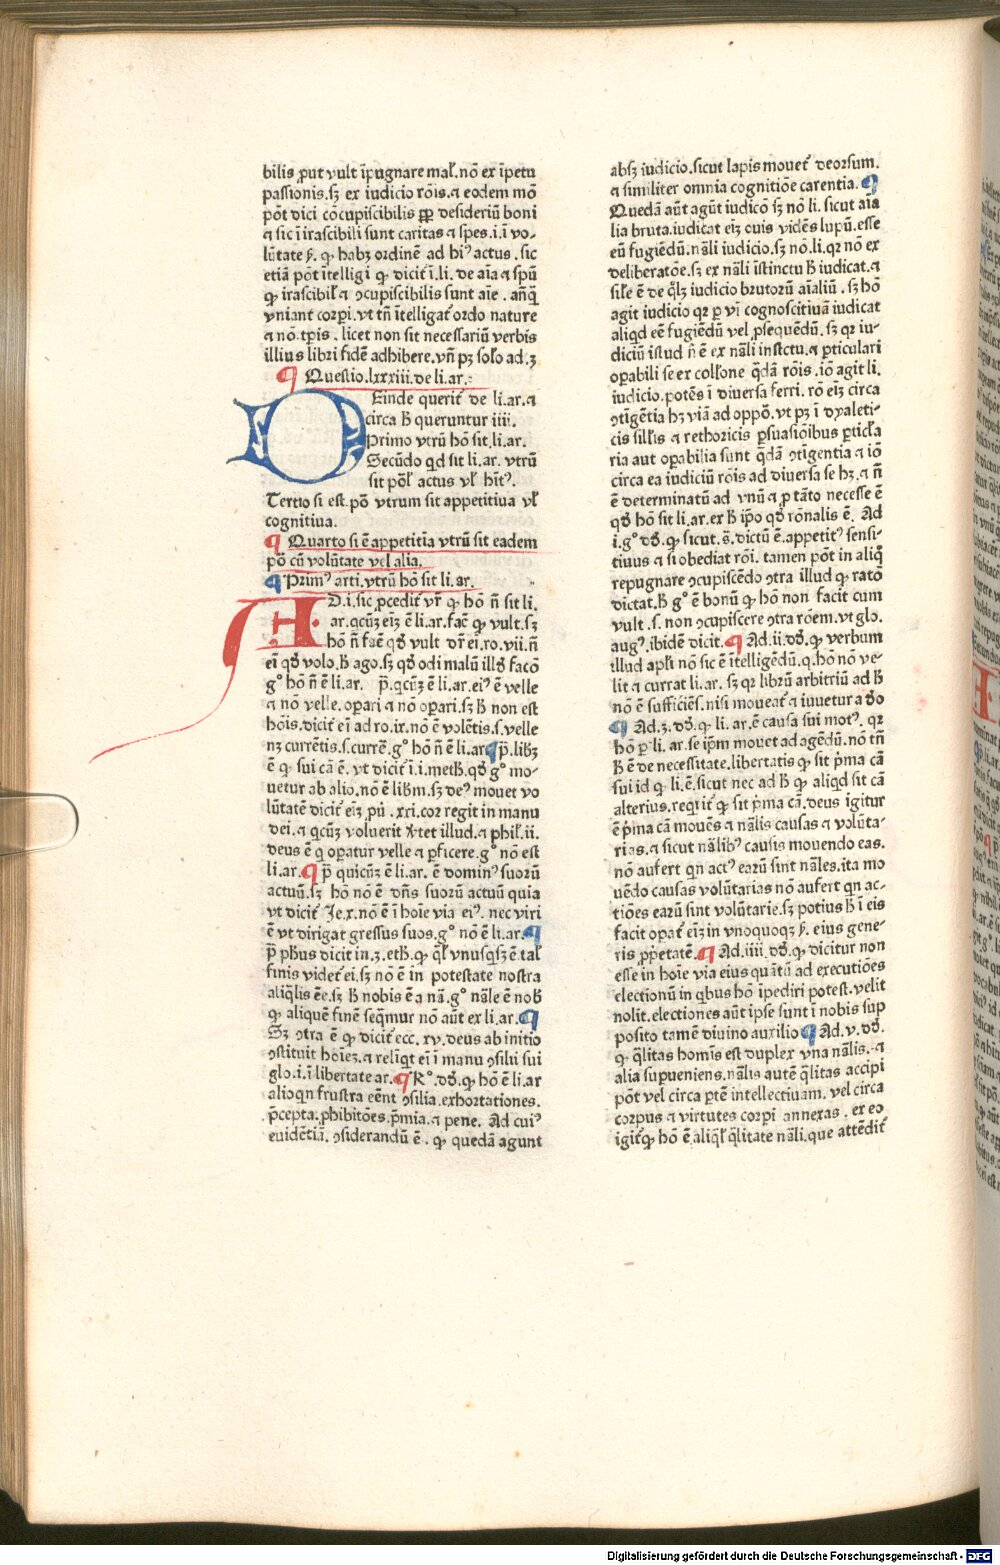 bilis ꝓut vult ī̄pugnare mal̄. nō ex īpetu
passionis. sꝫ ex iudicio rōis. ⁊ eodem mō
pōt dici cōcupiscibilis ꝓp̄ desideriū boni
⁊ sic ī irascibili sunt caritas ⁊ spes. i. ī vo-
lūtate ẜ. ꝙ habꝫ ordinē ad hiꝰ actus. sic
etiā pōt ītelligi ꝙ dicit̄ ī. li. de aīa ⁊ spū
ꝙ irascibil̄ ⁊ ꝯcupiscibilis sunt aīe. anq̄
vniant̄ corpī. vt tn̄ ītelligat̄ ordo nature
⁊ nō tp̄is. licet non sit necessariū verbis
illius libri fidē adhibere. vn̄ pꝫ solo ad. 3
¶ Questio. lxxxiii. de li. ar.
Deinde querit̄ de li. ar. ⁊
circa h̄ queruntur iiii.
Primo vtrū hō sit. li. ar.
Secūdo qd sit li. ar. vtrū
sit pōl̄ actus vl̄ hīt̄ꝰ.
Tertio si est. pō vtrum sit appetitiua vl̄
cognitiua.
¶ Quarto si ē appetitia vtrū sit eadem
pō cū volūtate vel alia.
¶ Primꝰ arti. vtrū hō sit li. ar.
AD. i. sic ꝓcedit̄ vr̄ ꝙ hō n̄ sit li.
ar. qcūꝫ eīꝫ ē li. ar. fac̄ ꝙ vult. sꝫ
hō n̄ fac̄ qđ vult dr̄ eī. ro. vii. n̄
eī qđ volo. h̄ ago. sꝫ qđ odi malū illđ facō
gͦ hō n̄ ē li. ar. p̄. qcūꝫ ē li. ar. eiꝰ ē velle
⁊ nō velle. oꝑari ⁊ nō oꝑari. sꝫ h̄ non est
hōis. dicit̄ eī ad ro. ix. nō ē volētis. s. velle
nꝫ currētis. s. currē. gͦ hō n̄ ē li. ar. ¶ p̄. libꝫ
ē ꝙ sui cā ē. vt dicit̄ ī. i. meth. qđ gͦ mo-
uetur ab alio. nō ē libm̄. sꝫ deꝰ mouet vo
lūtatē dicit̄ eīꝫ pū. xxi. cor regit in manu
dei. ⁊ qcūꝫ voluerit v̄tet illud. ⁊ phil̄. ii.
deus ē q oꝑatur velle ⁊ ꝑficere. gͦ nō est
li. ar. ¶ p̄ quicūꝫ ē li. ar. ē dominꝰ suorū
actuū. sꝫ hō nō ē dn̄s suorū actuū quia
vt dicit̄ Je. x. nō ē ī hoīe via eiꝰ. nec viri
ē vt dirigat gressus suos. gͦ nō ē li. ar. ¶
p̄ ph̄us dicit in. 3. eth. ꝙ ql̄ vnusqsꝫ ē. tal̄
finis videt̄ ei. sꝫ nō ē in potestate nostra
aliqlis ēe. sꝫ h̄ nobis ē a nā. gͦ nāle ē nob̄
ꝙ aliquē finē seqmur nō aūt ex li. ar. ¶
Sꝫ ꝯtra ē ꝙ dicit̄ ecc. xv. deus ab initio
ꝯstituit hoīeꝫ. ⁊ reliqt eī ī manu ꝯsilii sui
glo. i. ī libertate ar. ¶ Rͦ. dđ. ꝙ hō ē li. ar
alioqn frustra eēnt ꝯsilia. exhortationes.
p̄cepta. ꝓhibitōes. p̄mia. ⁊ pene. Ad cuiꝰ
euidētiā. ꝯsiderandū ē. ꝙ quedā agunt
absꝫ iudicio. sicut lapis mouet̄ deorsum.
⁊ similiter omnia cognitiōe carentia. ¶
Quedā aūt agūt iudicō sꝫ nō li. sicut aīa
lia bruta. iudicat eīꝫ ouis vidēs lupū. esse
eū fugiēdū. nāli iudicio. sꝫ nō. li. qꝛ nō ex
deliberatōe. sꝫ ex nāli īstinctu h̄ iudicat. ⁊
sil̄e ē de qlꝫ iudicio brutorū aīaliū. sꝫ hō
agit iudicio qꝛ ꝑ vī cognoscitiuā iudicat
aliqd eē fugiēdū vel ꝓsequēdū. sꝫ qꝛ iu-
diciū istud n̄ ē ex nāli instctu. ⁊ ꝑticulari
oꝑabili se ex coll̄one qdā rōis. iō agit li.
iudicio. potēs ī diuersa ferri. rō eīꝫ circa
ꝯtīgētia hꝫ viā ad oppō. vt pꝫ ī dyaleti-
cis sill̄is ⁊ rethoricis ꝑsuasiōibus ꝑticl̄a
ria aut oꝑabilia sunt qdā ꝯtīgentia ⁊ iō
circa ea iudiciū rōis ad diuersa se hꝫ. ⁊ n̄
ē determinatū ad vnū ⁊ ꝑ tāto necesse ē
qđ hō sit li. ar. ex h̄ ip̄o qđ rōnalis ē. Ad
i. gͦ dđ. ꝙ sicut. s̄. dictū ē. appetitꝰ sensi-
tiuus ⁊ si obediat rōi. tamen pōt in aliq
repugnare ꝯcupiscēdo ꝯtra illud ꝙ ratō
dictat. h̄ gͦ ē bonū ꝙ hō non facit cum
vult. s. non ꝯcupiscere ꝯtra rōem. vt glo.
augꝰ. ibidē dicit. ¶ Ad. ii. dđ. ꝙ verbum
illud apl̄i nō sic ē ītelligēdū. q. hō nō ve-
lit ⁊ currat li. ar. sꝫ qꝛ librū arbitriū ad h̄
nō ē sufficiēs. nisi moueat̄ ⁊ iuuetur a do
¶ Ad. 3. dđ. ꝙ li. ar. ē causa sui motꝰ. qꝛ
hō ꝑ li. ar. se ip̄m mouet ad agēdū. nō tn̄
h̄ ē de necessitate. libertatis ꝙ sit p̄ma cā
sui id ꝙ li. ē. sicut nec ad h̄ ꝙ aliqd sit cā
alterius. reqrit̄ ꝙ sit p̄ma cā. deus igitur
ē p̄ma cā mouēs ⁊ nālis causas ⁊ volūta-
rias. ⁊ sicut nālibꝰ causis mouendo eas.
nō aufert qn actꝰ earū sint nāles. ita mo
uēdo causas volūtarias nō aufert qn ac-
tiōes earū sint volūtarie. sꝫ potius h̄ ī eis
facit oꝑat̄ eīꝫ in vnoquoqꝫ ẜ. eius gene-
ris ꝓpetatē. ¶ Ad. iiii. dđ. ꝙ dicitur non
esse in hoīe via eius quātū ad executiōes
electionū in qbus hō īpediri potest. velit
nolit. electiones aūt ipse sunt ī nobis sup
posito tamē diuino auxilio ¶ Ad. v. dđ.
ꝙ qlitas homīs est duplex vna nālis. ⁊
alia supueniens. nālis autē qlitas accipi
pōt vel circa ꝑtē intellectiuam. vel circa
corpus ⁊ virtutes corpī annexas. ex eo
igit̄ ꝙ hō ē aliql̄ qlitate nāli. que attēdit̄
Digitalisierung gefördert durch die Deutsche Forschungsgemeinschaft - DFG